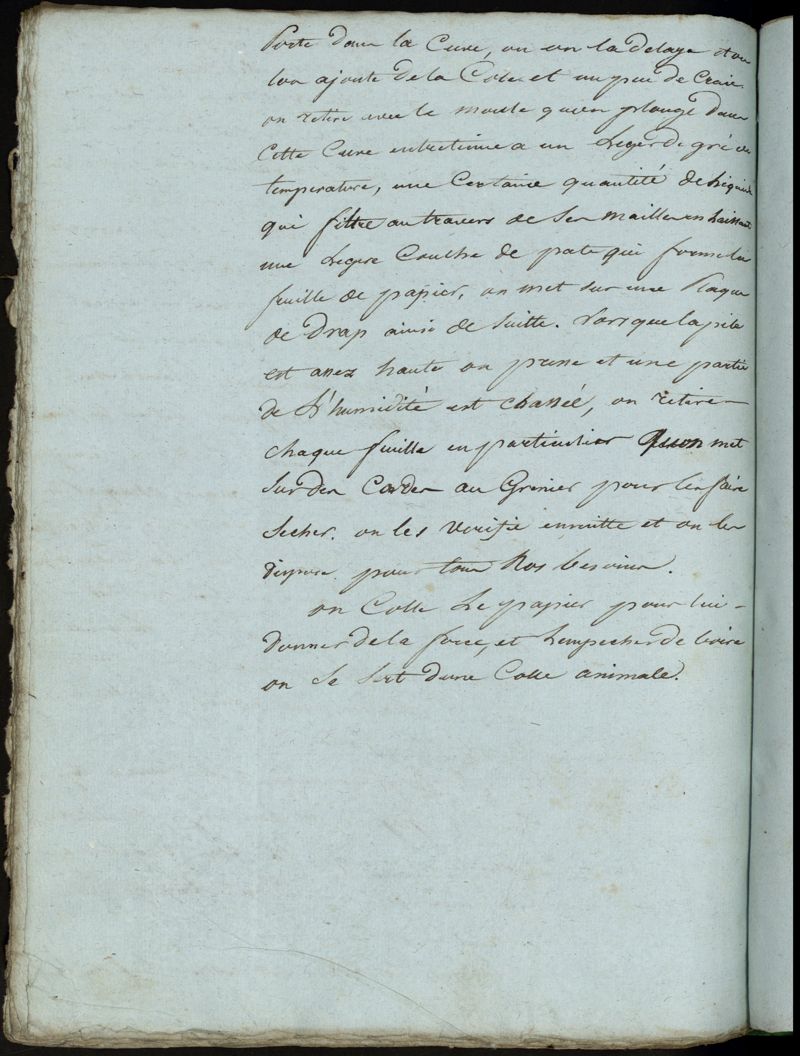 Porte dans la Cuve, ou on la delaye et ou
lon ajoute de la Colle et un peu de Craie
on retire avec le moule qu'on plonge dans
Cette Cuve entretenue a un Leger degré de
temperature, une Certaine quantité de Liquide
qui filtre au travers de Ses mailles en laissant
une Legere Couche de pate qui forme la
feuille de papier, on met sur une Plaque
de Drap ainsi de Suitte. Lorsque la pile
est assez haute on presse et une partie
de L'humidité est chassée, on retire
chaque feuille en particulier Quon met
Sur des Cordes au Grenier pour les faire
Secher. on les Verifie ensuitte et on les
dispose pour tous Nos besoins.
on Colle Le papier pour lui
donner de la force, et Lempecher de boire
on Se Sert d'une Colle animale.